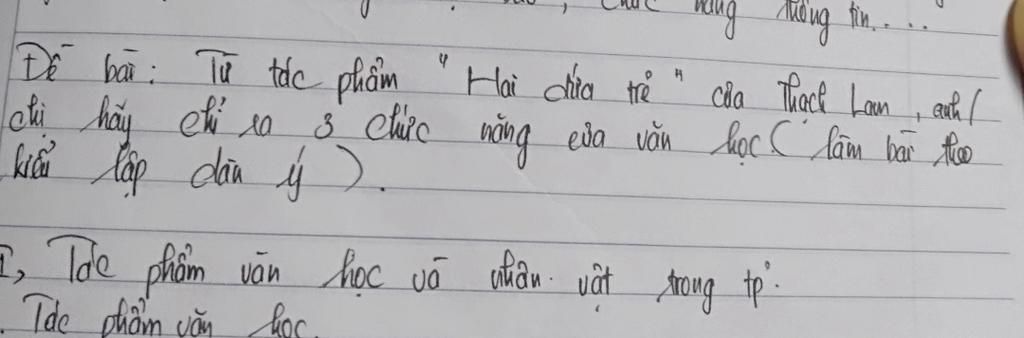 , chức năng thông tin....
Đề bài: Từ tác phẩm "Hai đứa trẻ" của Thạch Lam, anh/
chị hãy chỉ ra 3 chức năng của văn học (làm bài theo
kiểu lập dàn ý).
I, Tác phẩm văn học và nhân vật trong tp.
. Tác phẩm văn học.